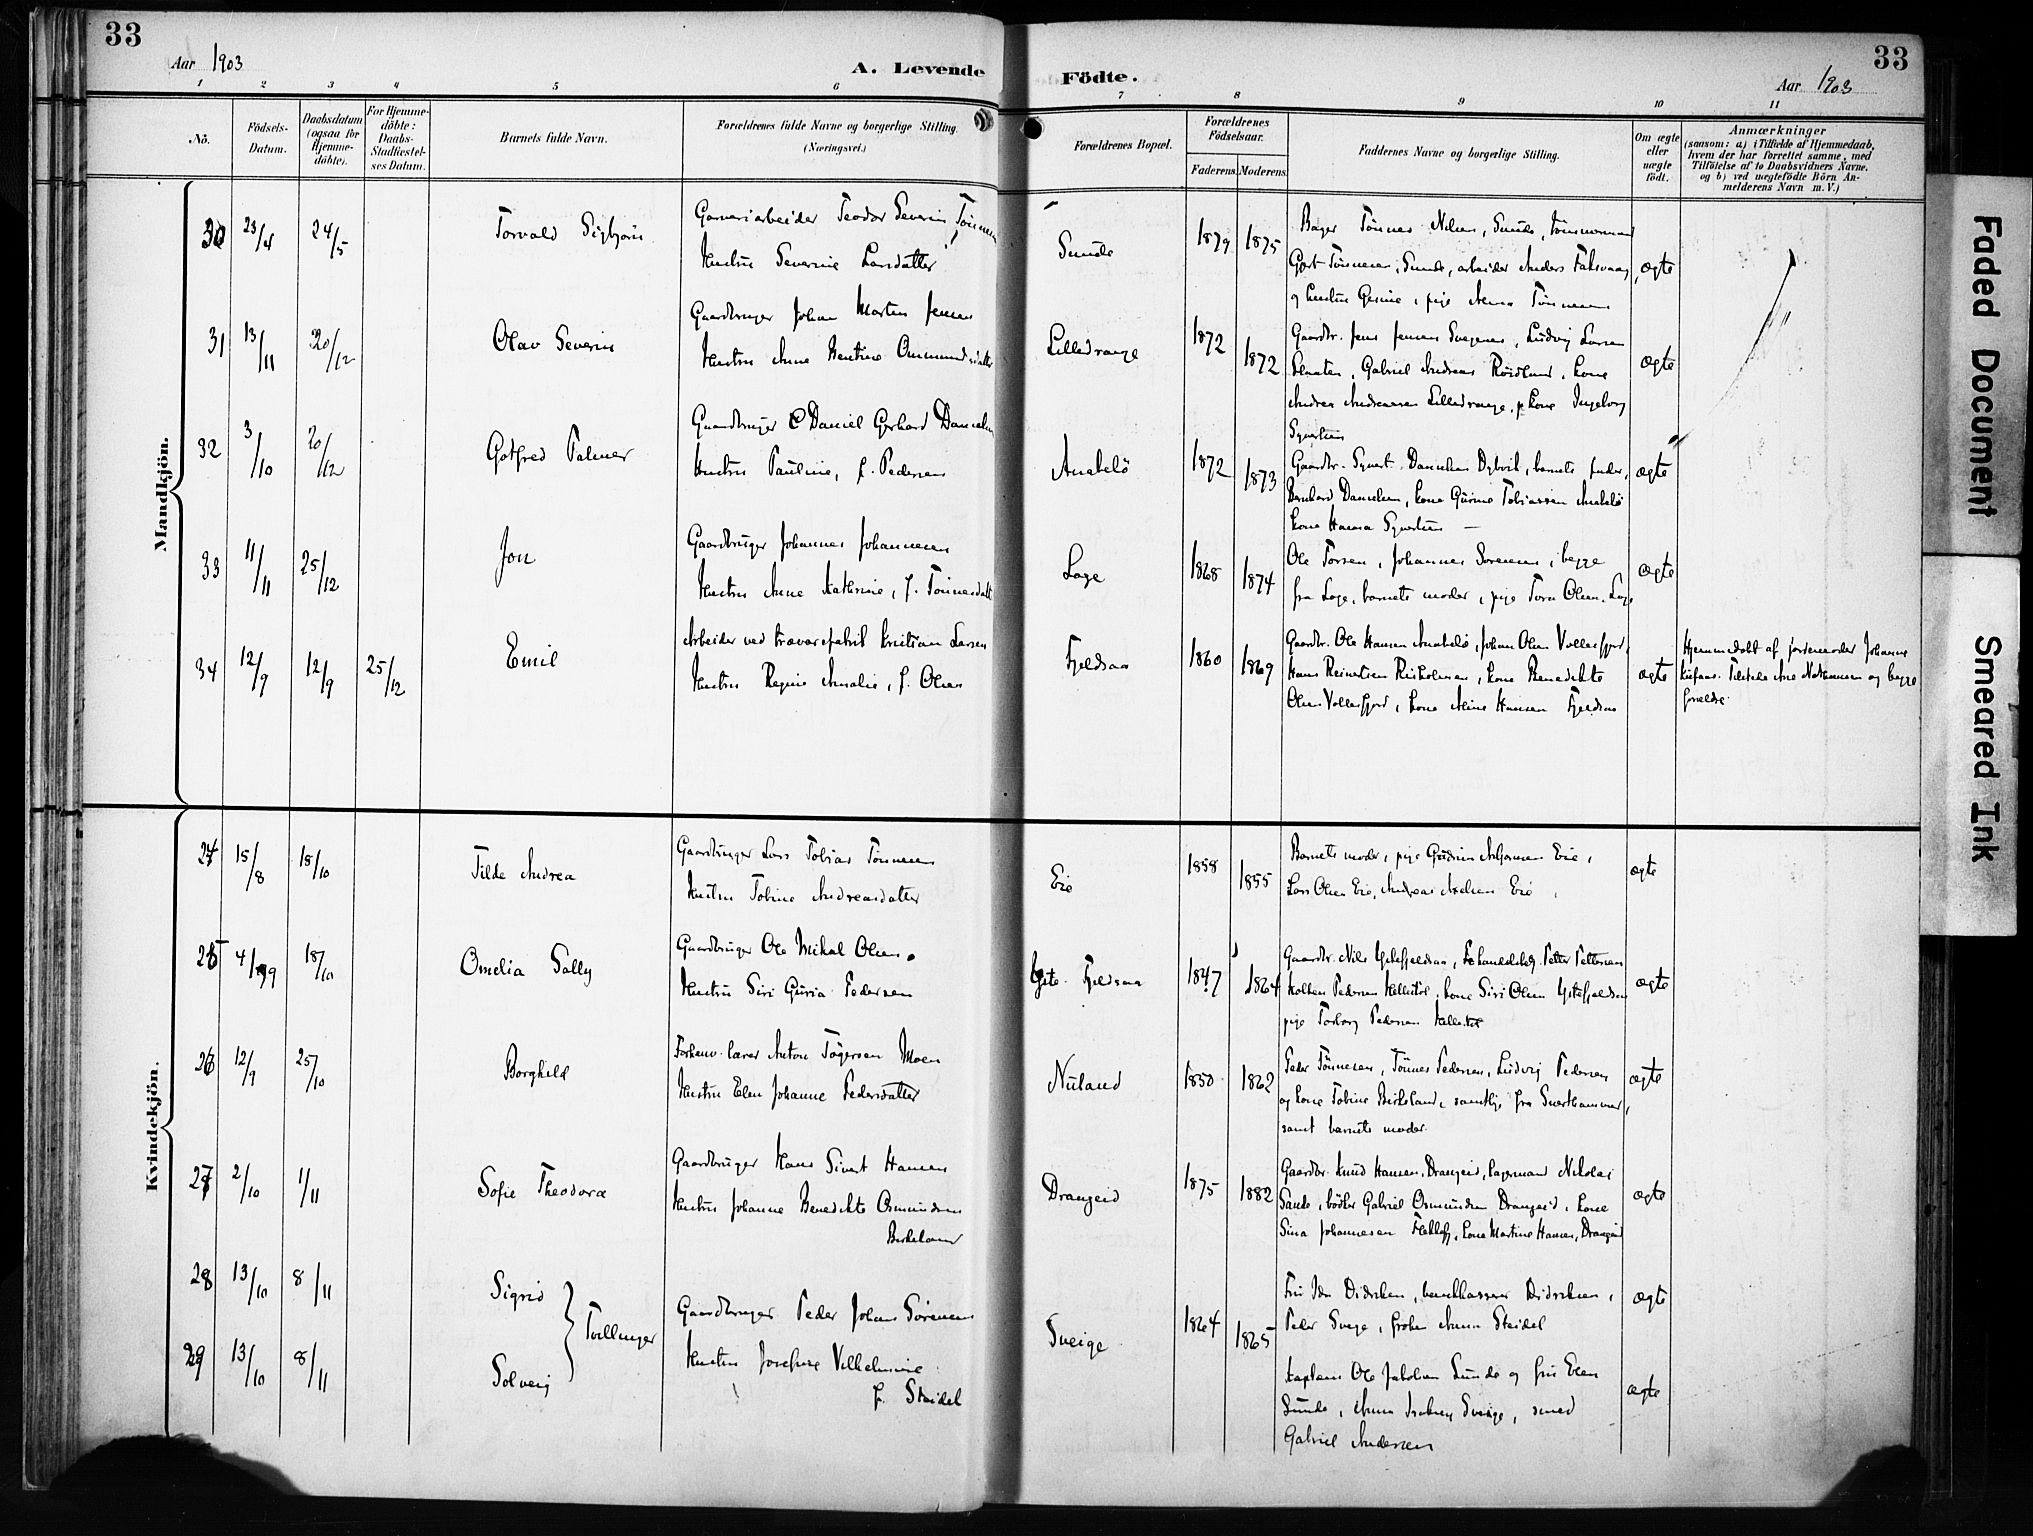 33
Aar 1903
A. Levende
1 2 3 4 5 6
No.
Födsels-
Datum.
Daabsdatum
(ogsaa for
Hjemme-
döbte).
For Hjemme-
döbte:
Daabs-
Stadfæstel-
ses Datum.
Barnets fulde Navn.
Forældrenes fulde Navne og borgerlige Stilling.
(Næringsvei.)
Födte.
33
Aar 1903
7 8 9 10 11
Forældrenes Bopæl.
Forældrenes
Födselsaar.
Faderens. Moderens.
Faddernes Navne og borgerlige Stilling.
Om ægte
eller
uægte
födt.
Anmærkninger
(saasom: a) i Tilfælde af Hjemmedaab,
hvem der har forrettet samme, med
Tilföielse af to Daabsvidners Navne.
og b) ved uægtefödte Börn An-
melderens Navn m. V.)
Mandkjön.
30 23/4 24/5 Torvald Sigbjørn
Garveriarbeider Teodor Severin Tønnesen
Hustru Severine Larsdatter
Sunde 1879 1875
Tønnes Nilsen, Sunde,
Tønnesen, Sunde, arbeider Anders
og hustru Gesine, pige Anna Tønnesen
ægte
31 13/11 20/12 Olav Severin
Gaardbruger Johan Martin Jensen
Hustru Anne Bentine Ommundsdatter
Lilledrange 1872 1872
Gaardbr. Jens Jensen, Ludvig Larsen
Gabriel Andreas, kone
Andrea Andreassen Lilledrange, kone Ingeborg
Syvertsen
ægte
32 3/10 20/12 Gotfred Palmer
Gaardbruger Daniel Gerhard Danielsen
Hustru Pauline, f. Pedersen
Anabelö 1872 1873
Gaardbr. Syvert Danielsen Dybvik, barnets fader,
Bernhard Danielsen, kone Gurine Tobiassen Anabelö
kone Hanna Syvertsen —
ægte
33 11/11 25/12 Jon
Gaardbruger Johannes Johannesen
Hustru Anne Katherine, f. Tönnesdatt
Loge 1868 1874
Ole Torsen, Johannes Sorensen, begge
fra Loge, barnets moder, pige Tora Olsen, Loge
ægte
34 12/9 12/9 25/12 Emil
Arbeider ved trævarefabrik Kristian Larsen
Hustru Regine Amalie, f. Olsen
Fjeldsaa 1860 1869
Gaardbr. Ole Hansen Anabelö, Johan Olsen Vollesfjord,
Hans Reinertsen Risholmen, kone Benedikte
Olsen Vollesfjord, kone Hansen Fjeldsaa
ægte
Hjemmedøbt af jordemoder Johanne
Tilstede Ane Nathansen og begge
forældre.
Kvindekjön.
24 15/8 18/10 Tilde Andrea
Gaardbruger Lars Tobias Tönnesen
Hustru Tobine Andreasdatter
Eie 1858 1855
Barnets moder, pige Gudrun Eie,
Lars Olsen Eie, Andreas Eie
ægte
25 4/9 18/10 Omelia Sally
Gaardbruger Ole Mikal Olsen
Hustru Siri Guria Pedersen
Yste Fjeldsaa 1847 1864
Gaardbr. Nils Ystefjeldsaa, Petter Pettersen
Pedersen, kone Siri Olsen Ystefjeldsaa
pige Torborg Pedersen
ægte
26 12/9 25/10 Borghild
Forhenv. lærer Anton Tögersen Moen
Hustru Elen Johanne Pedersdatter
Nuland 1850 1862
Peder Tönnesen, Tönnes Pedersen, Ludvig Pedersen
og kone Tobine Birkeland, samtlige fra Svarthammer,
samt barnets moder.
ægte
27 2/10 1/11 Sofie Theodora
Gaardbruger Hans Sivert Hansen
Hustru Johanne Benedikte Osmundsen
Birkeland
Drangeid 1875 1882
Gaardbr. Knud Hansen, Drangeid, Nikolai
Sande, bödker Gabriel Osmundsen Drangeid, kone
Sina Johannesen, kone Martine Hansen, Drangeid
ægte
28 13/10 8/11 Sigrid
29 13/10 8/11 Solveig
Tvillinger
Gaardbruger Peder Johan Sörensen
Hustru Josefine Vilhelmine
f. Steidel
Sveige 1864 1865
Fru Ida Didriksen, bankkasserer Didriksen,
Peder Svege, frøken Anna Steidel
ægte
Kaptein Ole Jakobsen Sunde og fru Elen
Sunde, Anna Sveige, smed
Gabriel Andersen
ægte
Faded Document
Smeared Ink